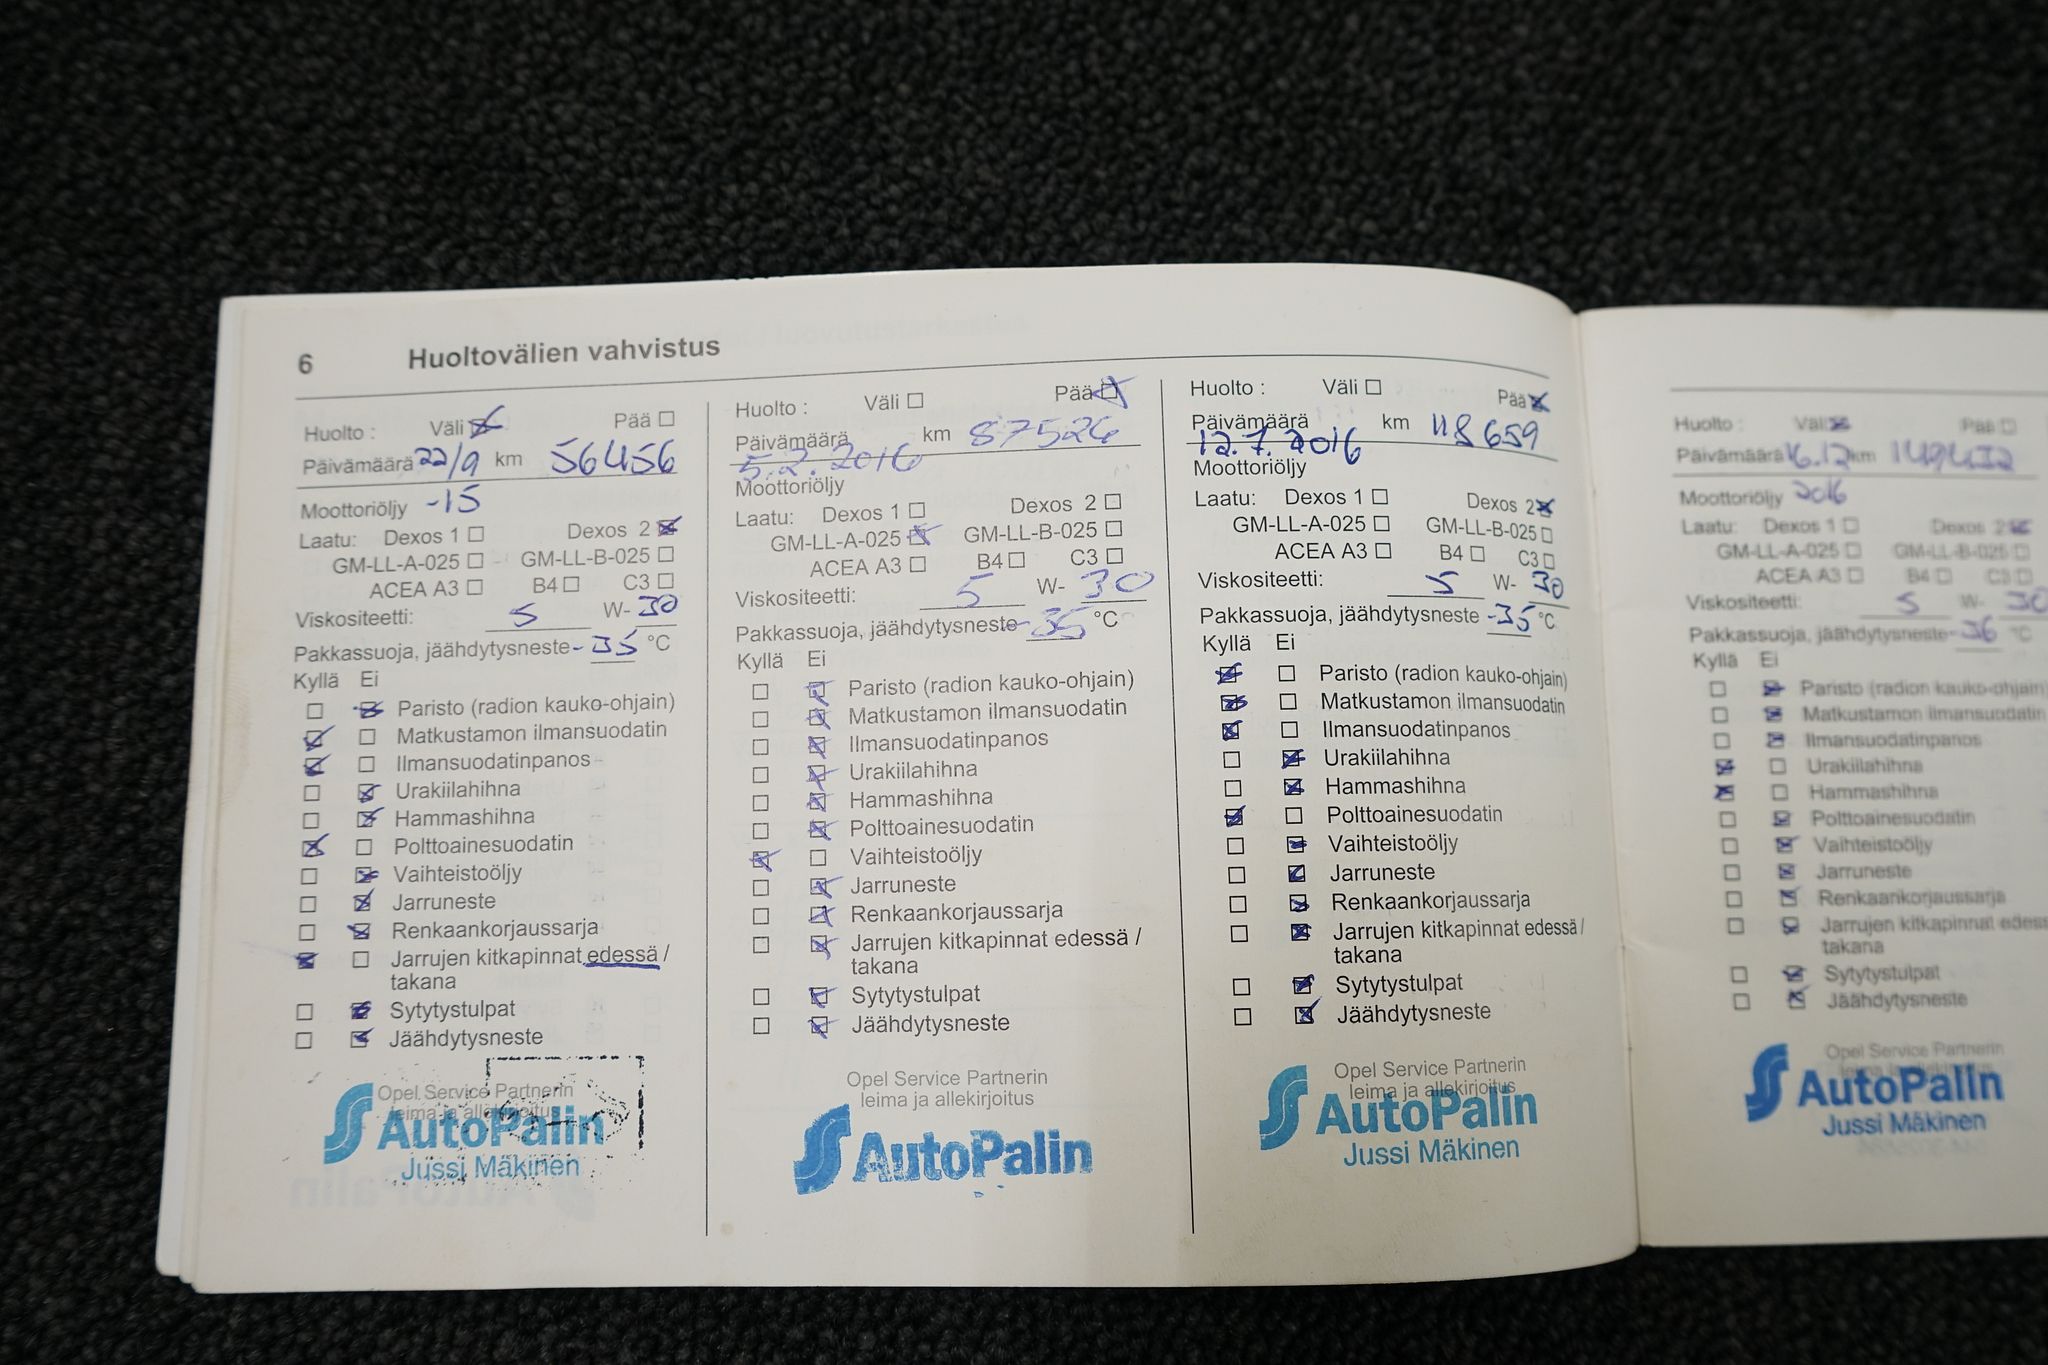 6 Huoltovälien vahvistus
Huolto : Väli Pää
Päivämäärä 22/9 km 56456
Moottoriöljy -15
Laatu: Dexos 1 Dexos 2
GM-LL-A-025 GM-LL-B-025
ACEA A3 B4 C3
Viskositeetti: 5 W- 30
Pakkassuoja, jäähdytysneste -35 °C
Kyllä Ei
Paristo (radion kauko-ohjain)
Matkustamon ilmansuodatin
Ilmansuodatinpanos
Urakiilahihna
Hammashihna
Polttoainesuodatin
Vaihteistoöljy
Jarruneste
Renkaankorjaussarja
Jarrujen kitkapinnat edessä /
takana
Sytytystulpat
Jäähdytysneste
Opel Service Partnerin
leima ja allekirjoitus
AutoPalin
Jussi Mäkinen
Huolto : Väli Pää
Päivämäärä km 87526
5.2.2016
Moottoriöljy
Laatu: Dexos 1 Dexos 2
GM-LL-A-025 GM-LL-B-025
ACEA A3 B4 C3
Viskositeetti: 5 W- 30
Pakkassuoja, jäähdytysneste -35 °C
Kyllä Ei
Paristo (radion kauko-ohjain)
Matkustamon ilmansuodatin
Ilmansuodatinpanos
Urakiilahihna
Hammashihna
Polttoainesuodatin
Vaihteistoöljy
Jarruneste
Renkaankorjaussarja
Jarrujen kitkapinnat edessä /
takana
Sytytystulpat
Jäähdytysneste
Opel Service Partnerin
leima ja allekirjoitus
AutoPalin
Huolto : Väli Pää
Päivämäärä km 118659
12.7.2016
Moottoriöljy
Laatu: Dexos 1 Dexos 2
GM-LL-A-025 GM-LL-B-025
ACEA A3 B4 C3
Viskositeetti: 5 W- 30
Pakkassuoja, jäähdytysneste -35 °C
Kyllä Ei
Paristo (radion kauko-ohjain)
Matkustamon ilmansuodatin
Ilmansuodatinpanos
Urakiilahihna
Hammashihna
Polttoainesuodatin
Vaihteistoöljy
Jarruneste
Renkaankorjaussarja
Jarrujen kitkapinnat edessä /
takana
Sytytystulpat
Jäähdytysneste
Opel Service Partnerin
leima ja allekirjoitus
AutoPalin
Jussi Mäkinen
Huolto : Väli Pää
Päivämäärä 16.12 km
Moottoriöljy 2016
Laatu: Dexos 1 Dexos 2
GM-LL-A-025 GM-LL-B-025
ACEA A3 B4 C3
Viskositeetti: 5 W- 30
Pakkassuoja, jäähdytysneste -36 °C
Kyllä Ei
Paristo (radion kauko-ohjain)
Matkustamon ilmansuodatin
Ilmansuodatinpanos
Urakiilahihna
Hammashihna
Polttoainesuodatin
Vaihteistoöljy
Jarruneste
Renkaankorjaussarja
Jarrujen kitkapinnat edess
takana
Sytytystulpat
Jäähdytysneste
Opel Service Partnerin
leima ja allekirjoitus
AutoPalin
Jussi Mäkinen